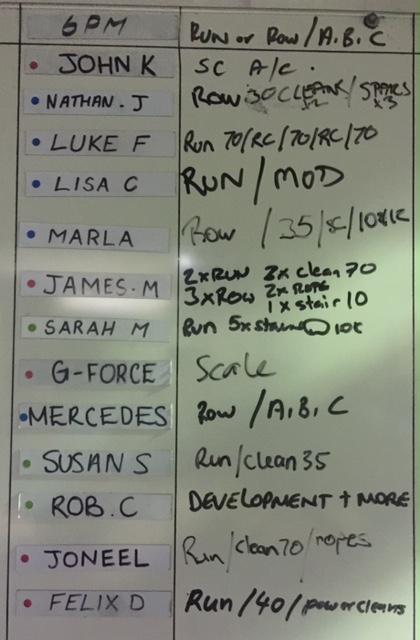 6PM Run or Row/A.B.C
JOHN K SC A/C.
NATHAN.J Row 30 CLEANS/
x2 x3
LUKE F Run 70/RC/70/RC/70
LISA C RUN/MOD
MARLA Row /35/
2xRUN 2x clean 70
JAMES.M 3xRow 2x ROPE
1x stair 10
SARAH M Run 5x
G-FORCE Scale
MERCEDES Row /A.B.C
SUSAN S Run/clean 35
ROB.C DEVELOPMENT + MORE
JONEEL Run/clean70/ropes
FELIX D Run/40/powercleans